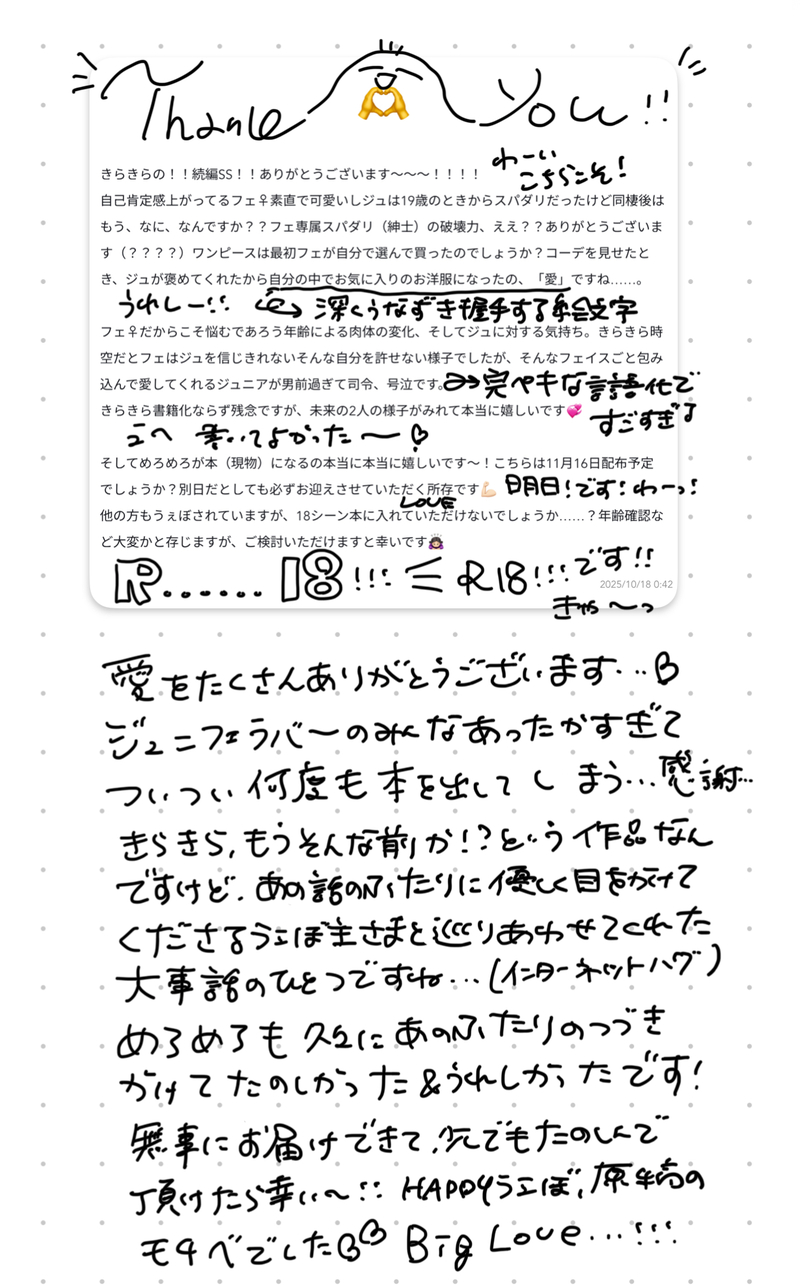 Thank You!!
きらきらの！！続編SS！！ありがとうございます〜〜〜！！！！
わーい
こちらこそ!
自己肯定感上がってるフェ♀素直で可愛いしジュは19歳のときからスパダリだったけど同棲後は
もう、なに、なんですか？？フェ専属スパダリ（紳士）の破壊力、ええ？？ありがとうございま
す（？？？？）ワンピースは最初フェが自分で選んで買ったのでしょうか？コーデを見せたと
き、ジュが褒めてくれたから自分の中でお気に入りのお洋服になったの、「愛」ですね……。
うれしー!! 深くうなずき握手する絵文字
フェ♀だからこそ悩むであろう年齢による肉体の変化、そしてジュに対する気持ち。きらきら時
空だとフェはジュを信じきれないそんな自分を許せない様子でしたが、そんなフェイスごと包み
込んで愛してくれるジュニアが男前過ぎて司令、号泣です。
完ペキな言語化で
すごすぎる
きらきら書籍化ならず残念ですが、未来の2人の様子がみれて本当に嬉しいです💘
書いてよかった〜♡
そしてめろめろが本（現物）になるの本当に本当に嬉しいです〜！こちらは11月16日配布予定
でしょうか？別日だとしても必ずお迎えさせていただく所存です💪🏻
明日!です!わーっ!
LOVE
他の方もうぇぼされていますが、18シーン本に入れていただけないでしょうか……？年齢確認な
ど大変かと存じますが、ご検討いただけますと幸いです🙇🏻‍♀️
R......18!!! R18!!!です!!
きゃ〜っ
2025/10/18 0:42
愛をたくさんありがとうございます…
ジュニフェラバーのみんなあったかすぎて
ついつい何度も本を出してしまう…感謝…
きらきら,もうそんな前か!?という作品なん
ですけど、あの話のふたりに優しく目をかけて
くださるうェぼ主さまと巡りあわせてくれた
大事話のひとつですね…(インターネットハグ)
めろめろも久々にあのふたりのつづき
かけてたのしかった&うれしかったです!
無事にお届けできて、でもたのしんで
頂けたら幸い〜!! HAPPYうェぼ、原稿の
モチベでした Big Love...!!!